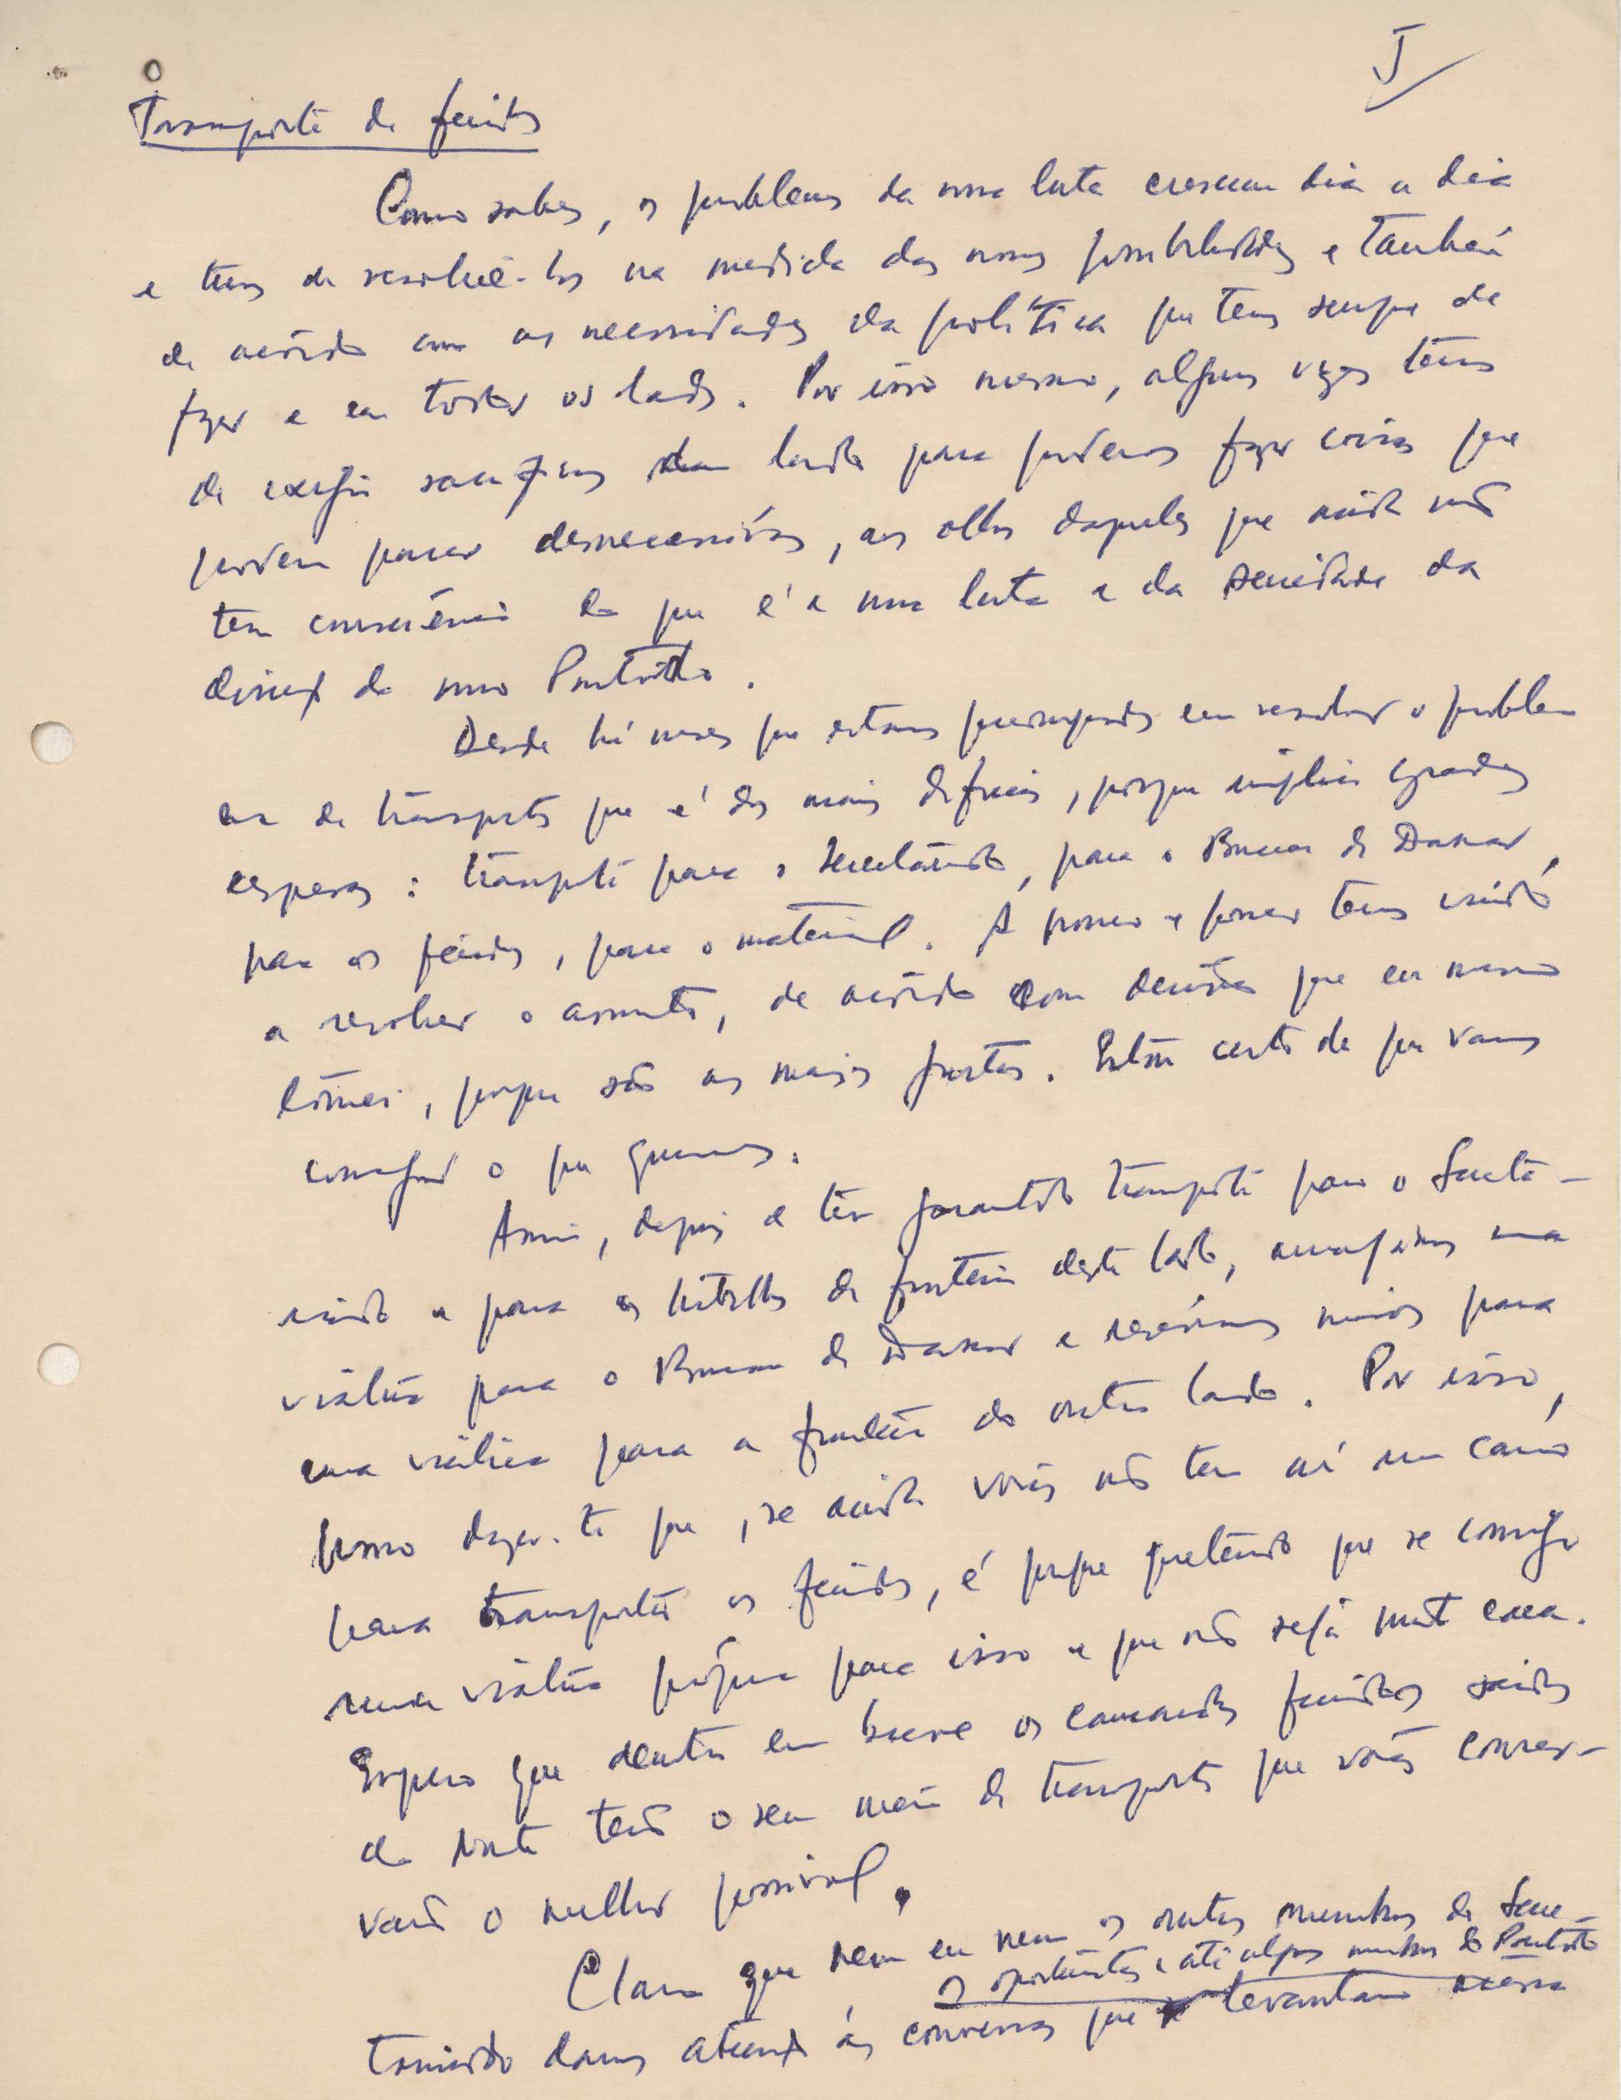 I
Transporte de feridos
Como sabes, os problemas da nossa luta crescem dia a dia
e temos de resolvê-los na medida das nossas possibilidades e também
de acôrdo com as necessidades da política que temos sempre de
fazer e em todos os lados. Por isso mesmo, algumas vezes temos
de exigir sacrifícios dum lado para podermos fazer coisas que
podem parecer desnecessárias, aos olhos daqueles que ainda não
tem consciência do que é a nossa luta e da seriedade da
direcção do nosso Partido.
Desde há meses que estamos preocupados em resolver o problema
de transportes que é dos mais difíceis, porque implica grandes
despesas: transporte para o Secretariado, para o Bureau de Dakar,
para os feridos, para o material. A pouco e pouco temos vindo
a resolver o assunto, de acôrdo com decisões que eu mesmo
tomei, porque são as mais justas. Estou certo de que vamos
conseguir o que queremos.
Assim, depois de ter garantido transporte para o Secreta-
riado e para os trabalhos da fronteira deste lado, arranjámos uma
viatura para o Bureau de Dakar e reservámos meios para
uma viatura para a fronteira do outro lado. Por isso,
posso dizer-te que, se ainda vocês não tem aí um carro
para transportar os feridos, é porque pretendo que se consiga
uma viatura própria para isso e que não seja muito cara.
Espero que dentro em breve os camaradas feridos saídos
do Norte terão o seu meio de transporte que vocês conser-
varão o melhor possível.
Claro que nem eu nem os outros membros do Secre-
tariado damos atenção às conversas que os oportunistas e até alguns membros do Partido levantam nessa